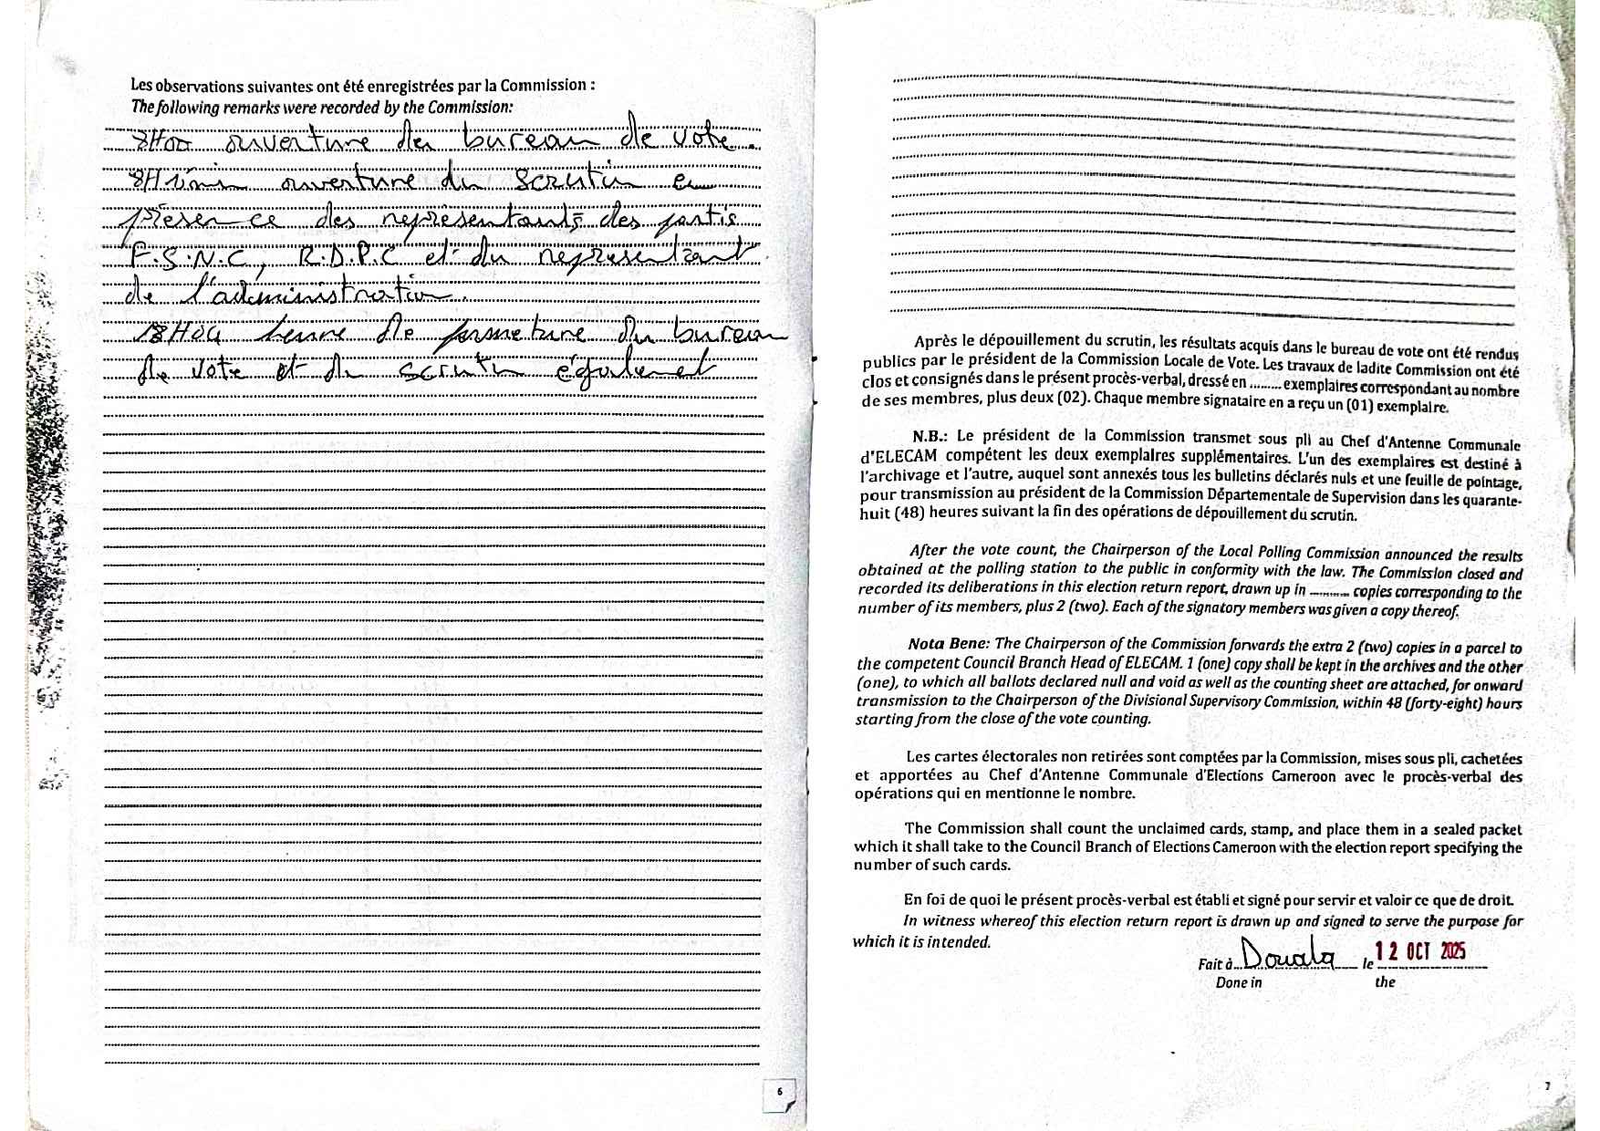 Les observations suivantes ont été enregistrées par la Commission :
The following remarks were recorded by the Commission:
8H00 ouverture du bureau de vote.
8H 1min ouverture du scrutin en
présence des représentants des partis
F.S.N.C, R.D.P.C et du representant
de l'administration.
18H00 heure de fermeture du bureau
de vote et du scrutin également
6
Après le dépouillement du scrutin, les résultats acquis dans le bureau de vote ont été rendus
publics par le président de la Commission Locale de Vote. Les travaux de ladite Commission ont été
clos et consignés dans le présent procès-verbal, dressé en ......... exemplaires correspondant au nombre
de ses membres, plus deux (02). Chaque membre signataire en a reçu un (01) exemplaire.
N.B.: Le président de la Commission transmet sous pli au Chef d'Antenne Communale
d'ELECAM compétent les deux exemplaires supplémentaires. L'un des exemplaires est destiné à
l'archivage et l'autre, auquel sont annexés tous les bulletins déclarés nuls et une feuille de pointage,
pour transmission au président de la Commission Départementale de Supervision dans les quarante-
huit (48) heures suivant la fin des opérations de dépouillement du scrutin.
After the vote count, the Chairperson of the Local Polling Commission announced the results
obtained at the polling station to the public in conformity with the law. The Commission closed and
recorded its deliberations in this election return report, drawn up in .......... copies corresponding to the
number of its members, plus 2 (two). Each of the signatory members was given a copy thereof.
Nota Bene: The Chairperson of the Commission forwards the extra 2 (two) copies in a parcel to
the competent Council Branch Head of ELECAM. 1 (one) copy shall be kept in the archives and the other
(one), to which all ballots declared null and void as well as the counting sheet are attached, for onward
transmission to the Chairperson of the Divisional Supervisory Commission, within 48 (forty-eight) hours
starting from the close of the vote counting.
Les cartes électorales non retirées sont comptées par la Commission, mises sous pli, cachetées
et apportées au Chef d'Antenne Communale d'Elections Cameroon avec le procès-verbal des
opérations qui en mentionne le nombre.
The Commission shall count the unclaimed cards, stamp, and place them in a sealed packet
which it shall take to the Council Branch of Elections Cameroon with the election report specifying the
number of such cards.
En foi de quoi le présent procès-verbal est établi et signé pour servir et valoir ce que de droit.
In witness whereof this election return report is drawn up and signed to serve the purpose for
which it is intended.
Fait à Douala le 12 OCT 2025
Done in the
7